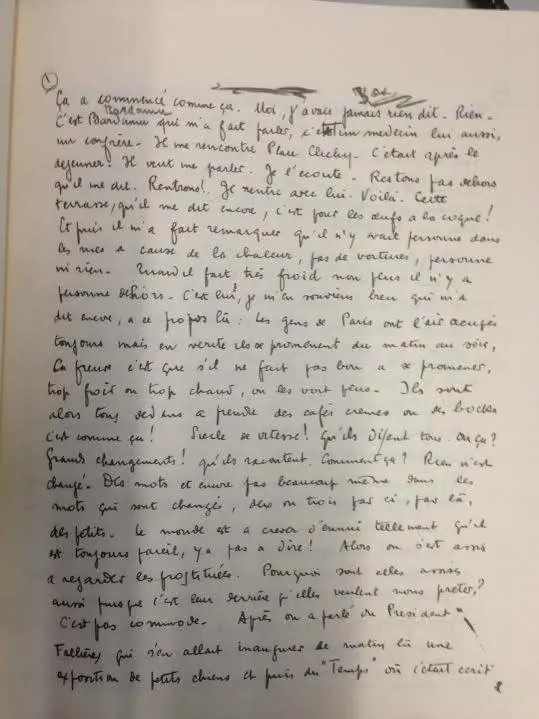 1
Ça a commencé comme ça. Moi, j'avais jamais rien dit. Rien.
Bardamu
C'est Bardamu qui m'a fait parler, c'est un médecin lui aussi,
un confrère. Il me rencontre Place Clichy. C'était après le
déjeuner. Il veut me parler. Je l'écoute. Restons pas dehors
qu'il me dit. Rentrons!. Je rentre avec lui. Voilà. Cette
terrasse, qu'il me dit encore, c'est pour les œufs à la coque!
Et puis il m'a fait remarquer qu'il n'y avait personne dans
les rues à cause de la chaleur, pas de voitures, personne
ni rien. Quand il fait très froid non plus il n'y a
personne dehors. C'est lui, je m'en souviens bien qui m'a
dit encore, à ce propos là: Les gens de Paris ont l'air occupés
toujours mais en vérité ils se promènent du matin au soir,
La preuve c'est que s'il ne fait pas bon à se promener,
trop froid ou trop chaud, on les voit plus. Ils sont
alors tous dedans à prendre des cafés crèmes ou des bocks
C'est comme ça! Siècle de vitesse! Qu'ils disent tous. Où ça?
Grands changements! qu'ils racontent. Comment ça? Rien n'est
changé. Des mots et encore pas beaucoup même dans les
mots qui sont changés, deux ou trois par ci, par là,
des petits. Le monde est à crever d'ennui tellement qu'il
est toujours pareil, y a pas à dire! Alors on s'est assis
à regarder les prostituées. Pourquoi sont elles assises
aussi puisque c'est leur derrière qu'elles veulent nous prêter?
C'est pas commode. Après on a parlé du Président
Fallières qui s'en allait inaugurer ce matin là une
exposition de petits chiens et puis du "Temps" où c'était écrit